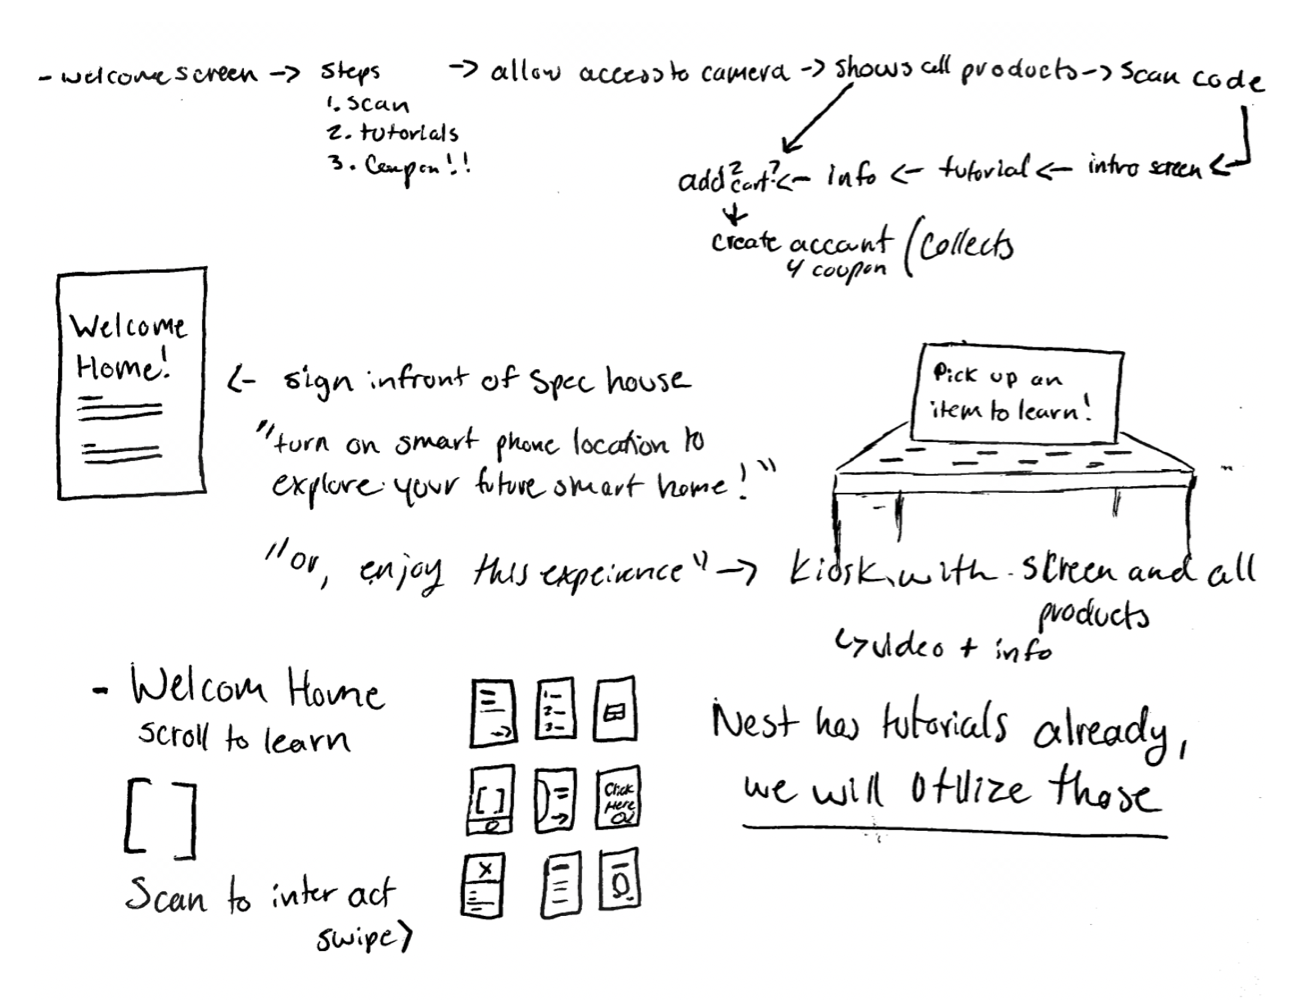 - welcome screen -> Steps -> allow access to camera -> shows all products -> Scan code
1. Scan
2. tutorials
3. Coupon!!
add 2 cart? <- info <- tutorial <- intro screen <-
create account (Collects
4 coupon
Welcome
Home!
<- sign infront of Spec house
"turn on smart phone location to
explore your future smart home!"
Pick up an
item to learn!
"or, enjoy this expeirence" -> kiosk with screen and all
products
video + info
- Welcom Home
scroll to learn
[ ]
Scan to interact
swipe >
1-
2-
3-
[ ]
Click
Here
X
Nest has tutorials already,
we will utilize those